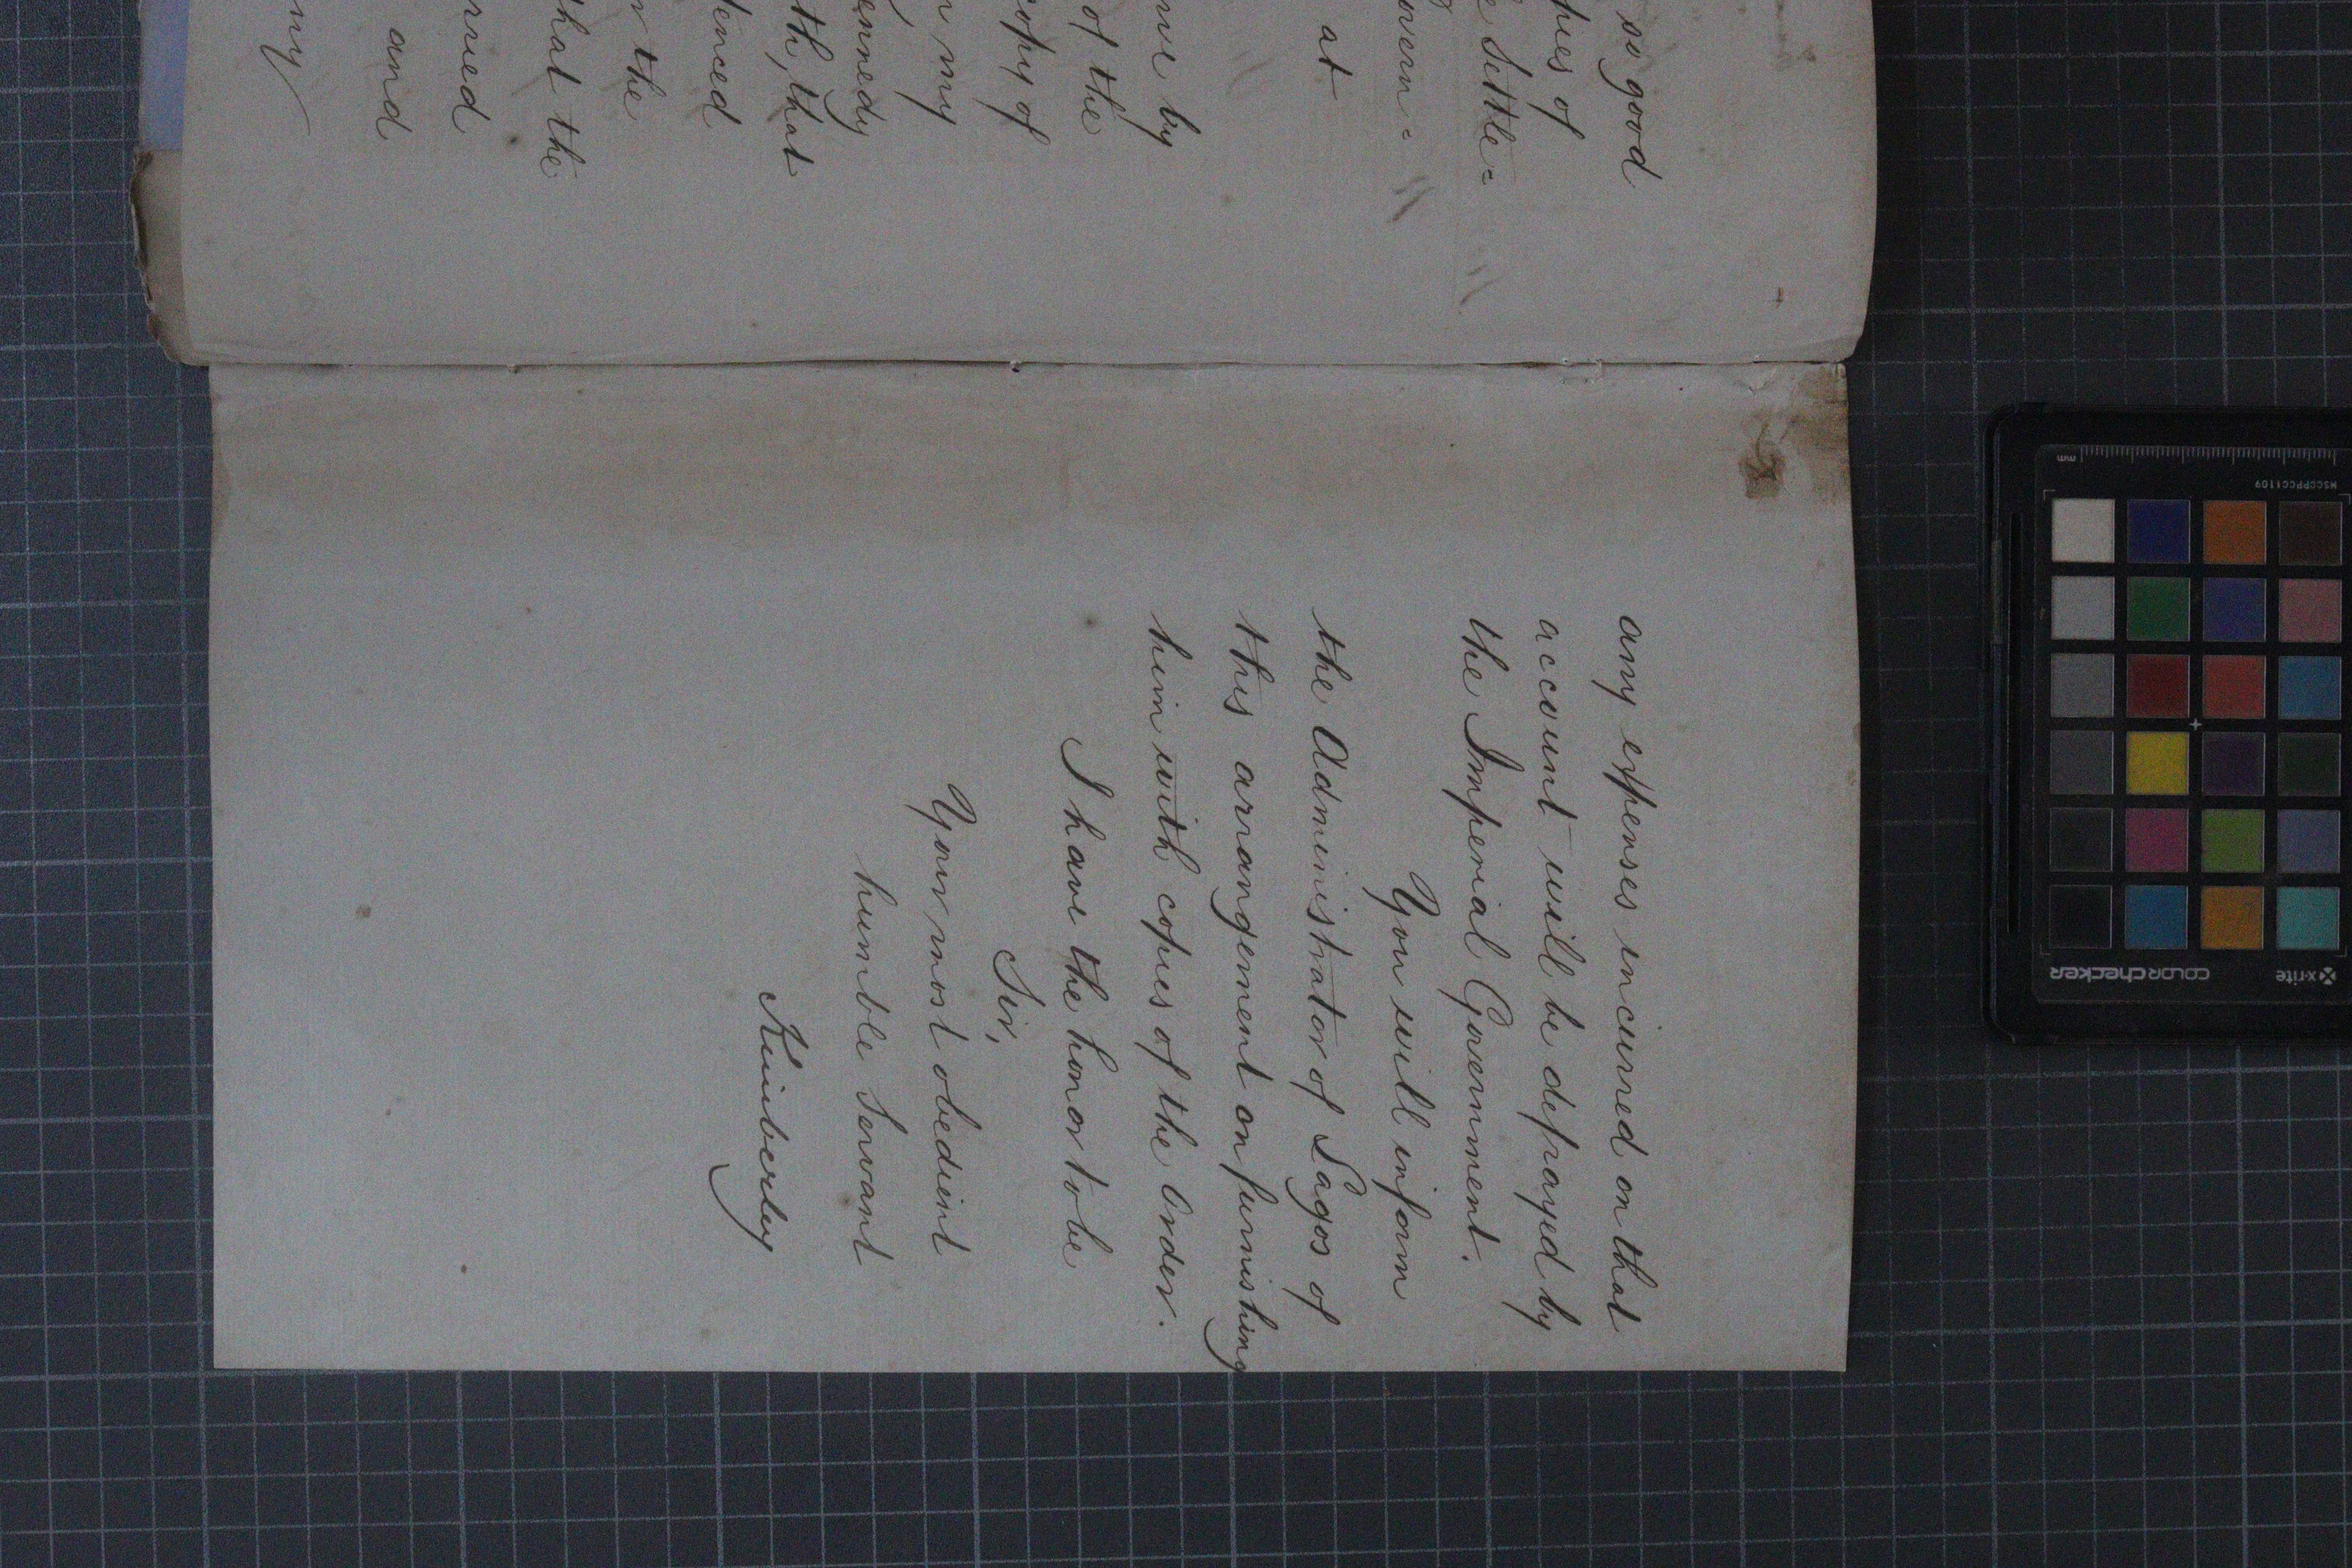 so good
pies of
e Settle=
overn=
at
me by
of the
copy of
n my
ennedy
th, that
tenced
r the
that the
rried
and
my
any expenses incurred on that
account will be defrayed by
the Imperial Government.
You will inform
the Administrator of Lagos of
this arrangement on furnishing
him with copies of the Order.
I have the honor to be
Sir,
Your most obedient
humble Servant
Kimberley
mm
MSCCPPCC1109
x-rite
colorchecker